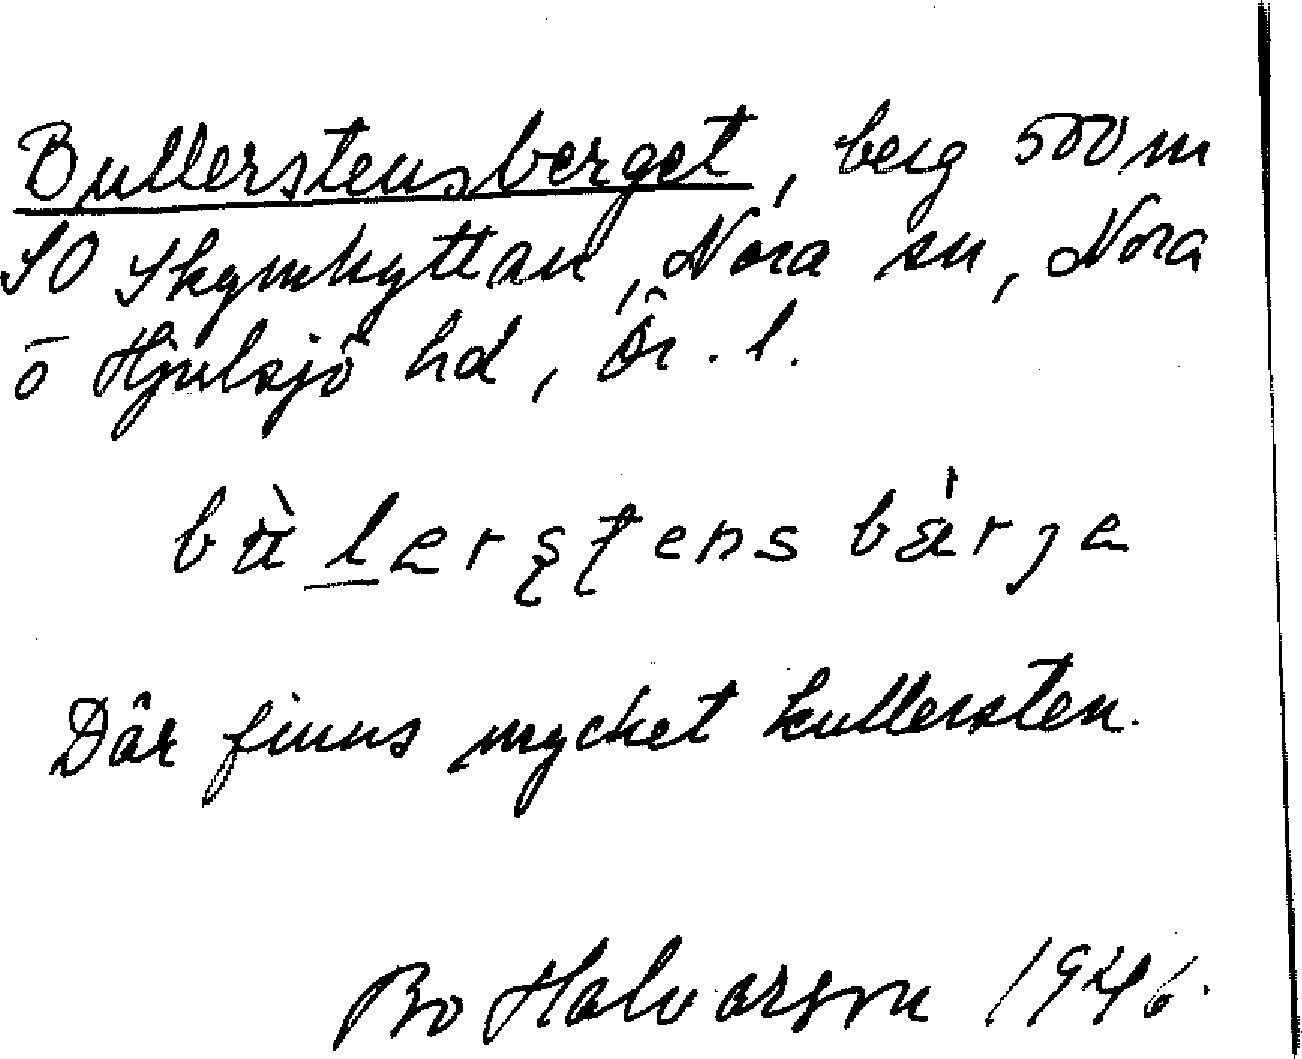 Bullerstensberget, berg 500 m
SO Skymhyttan, Nora sn, Nora
o Hjulsjö hd, Ör. l.
bù̈lerstens bärje
Där finns mycket kullersten.
Bo Halvarson 1946.